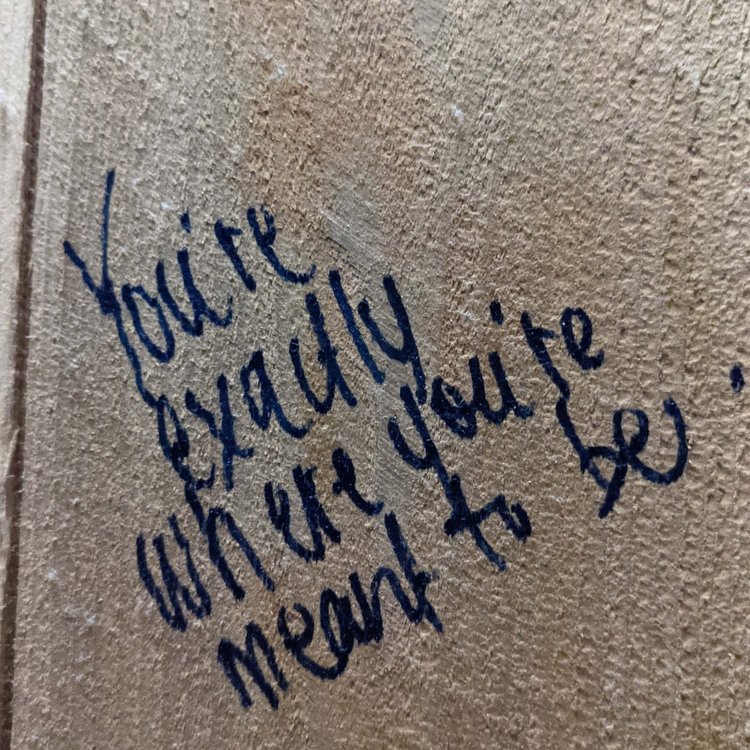 You're
exactly
where you're
meant to be.